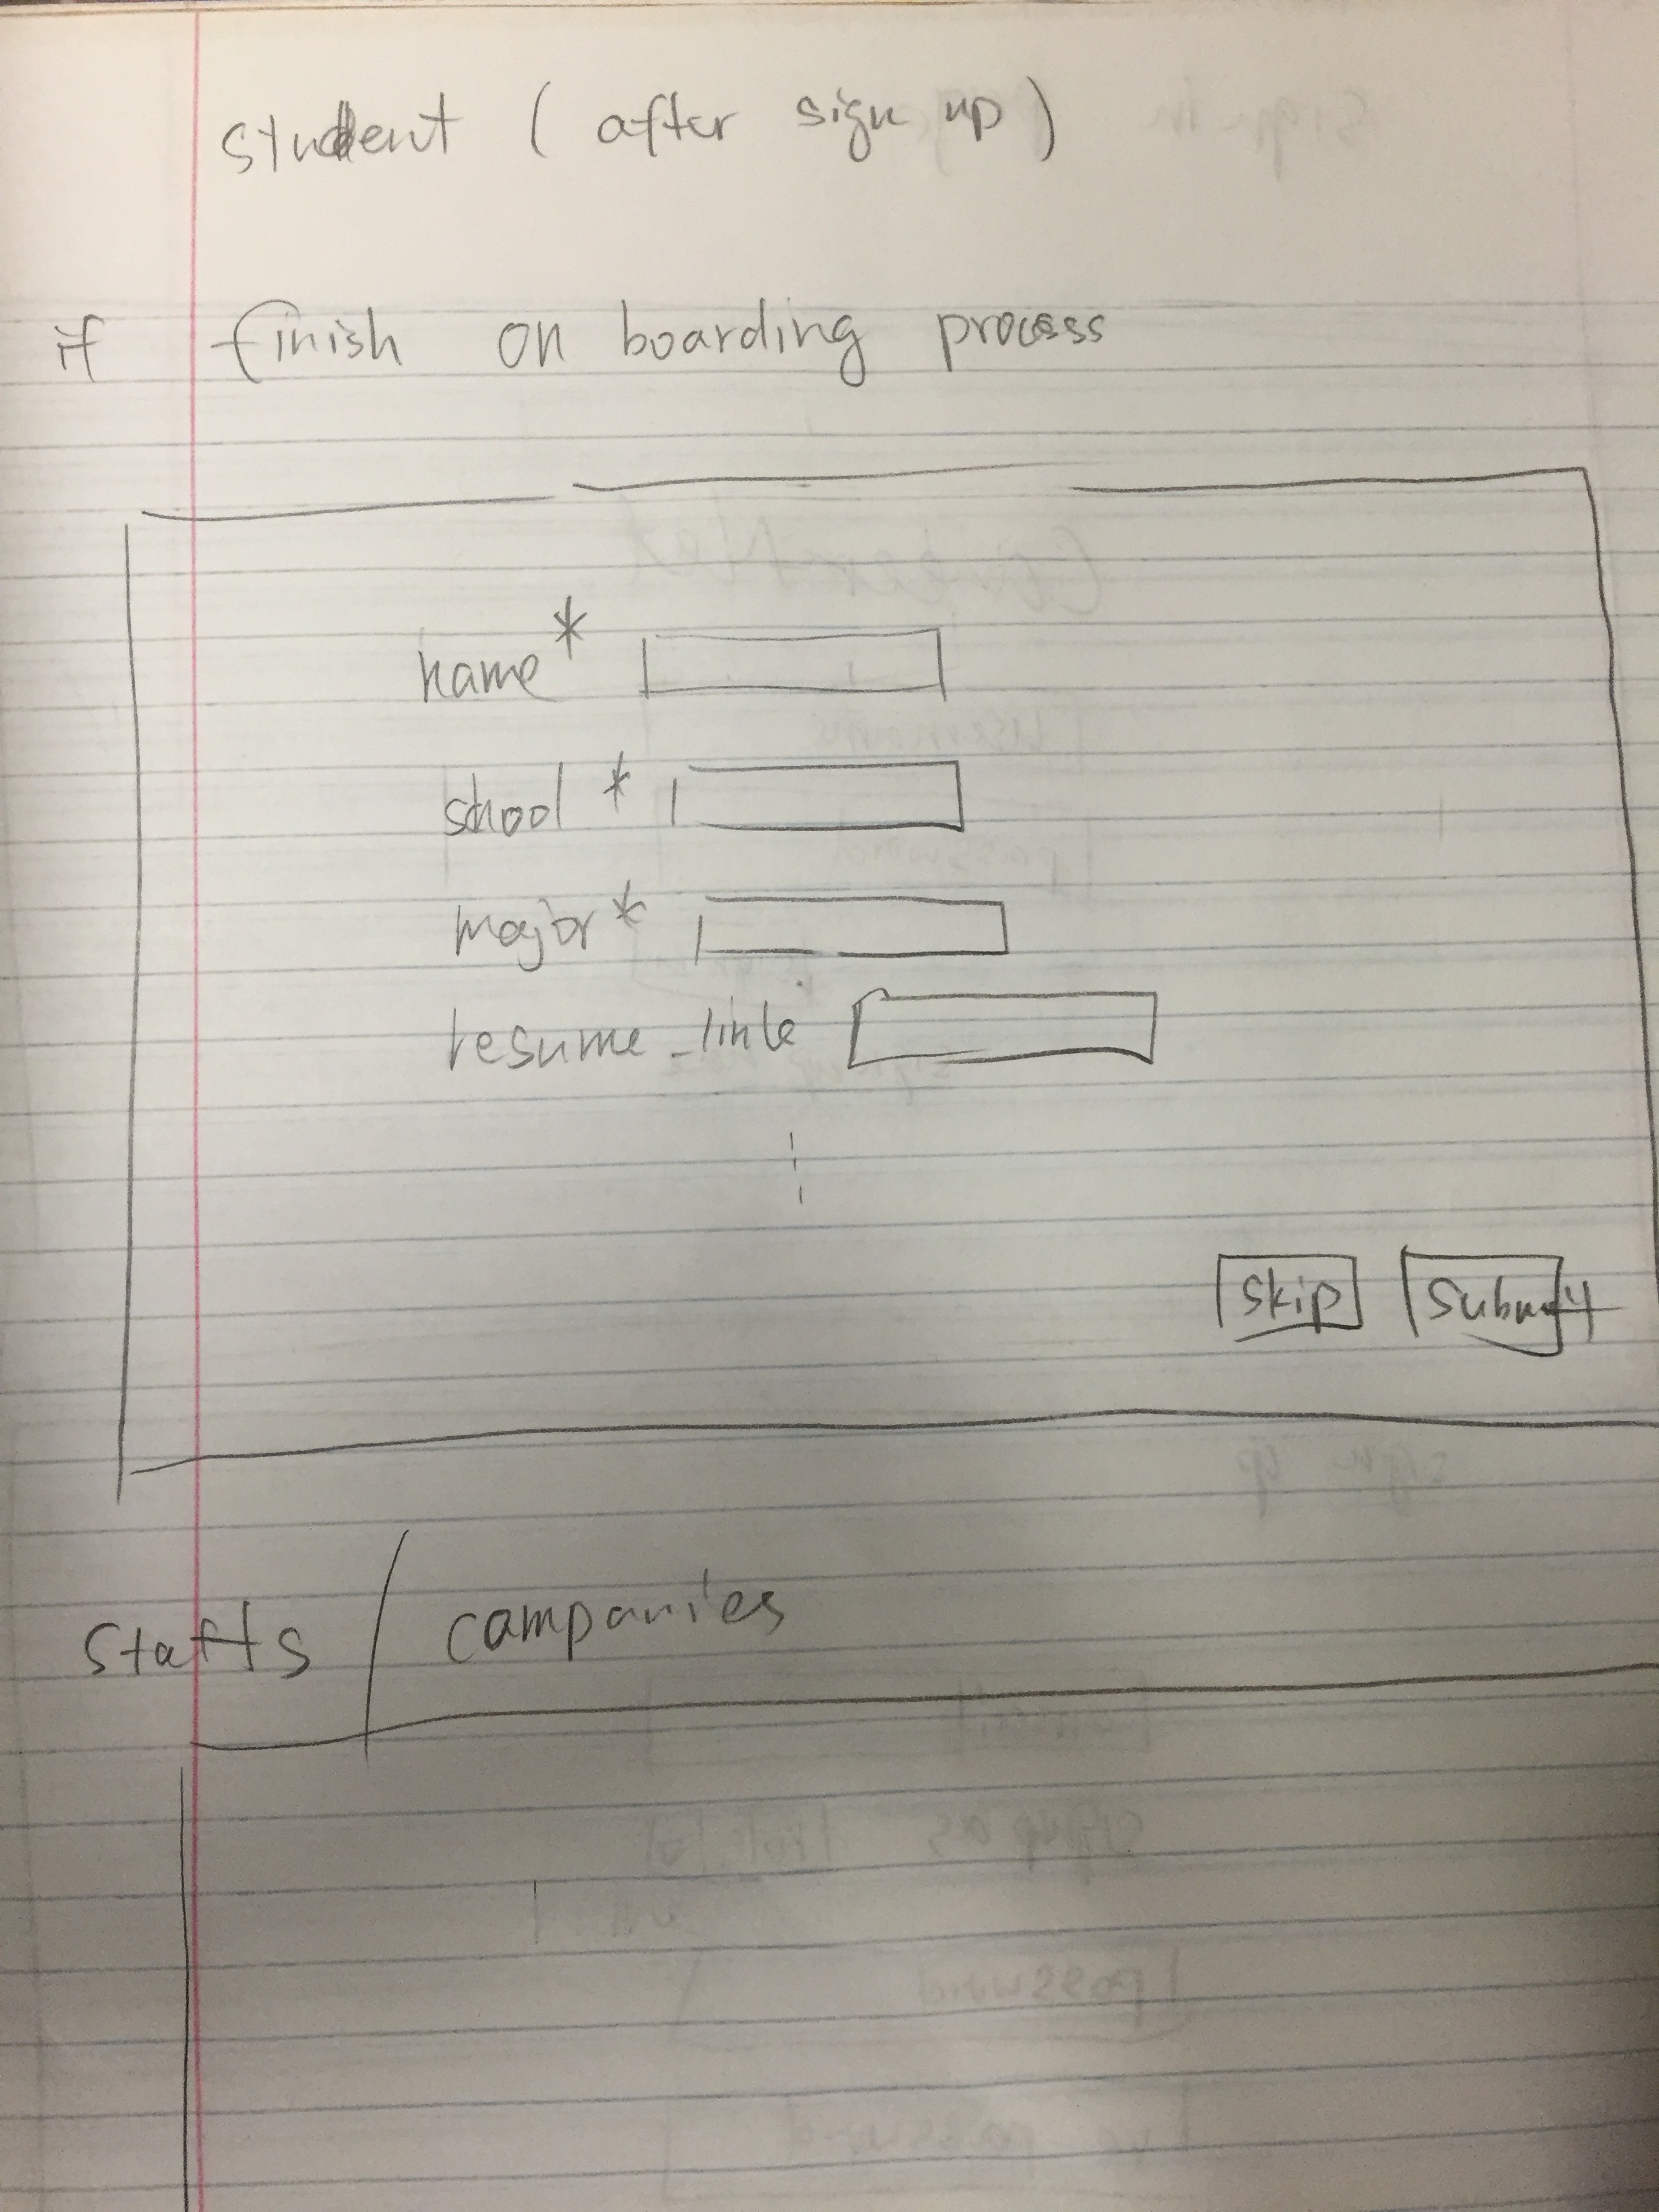 student (after sign up)
if finish on boarding process
name *
school *
major *
resume_link
skip submit
staffs / companies